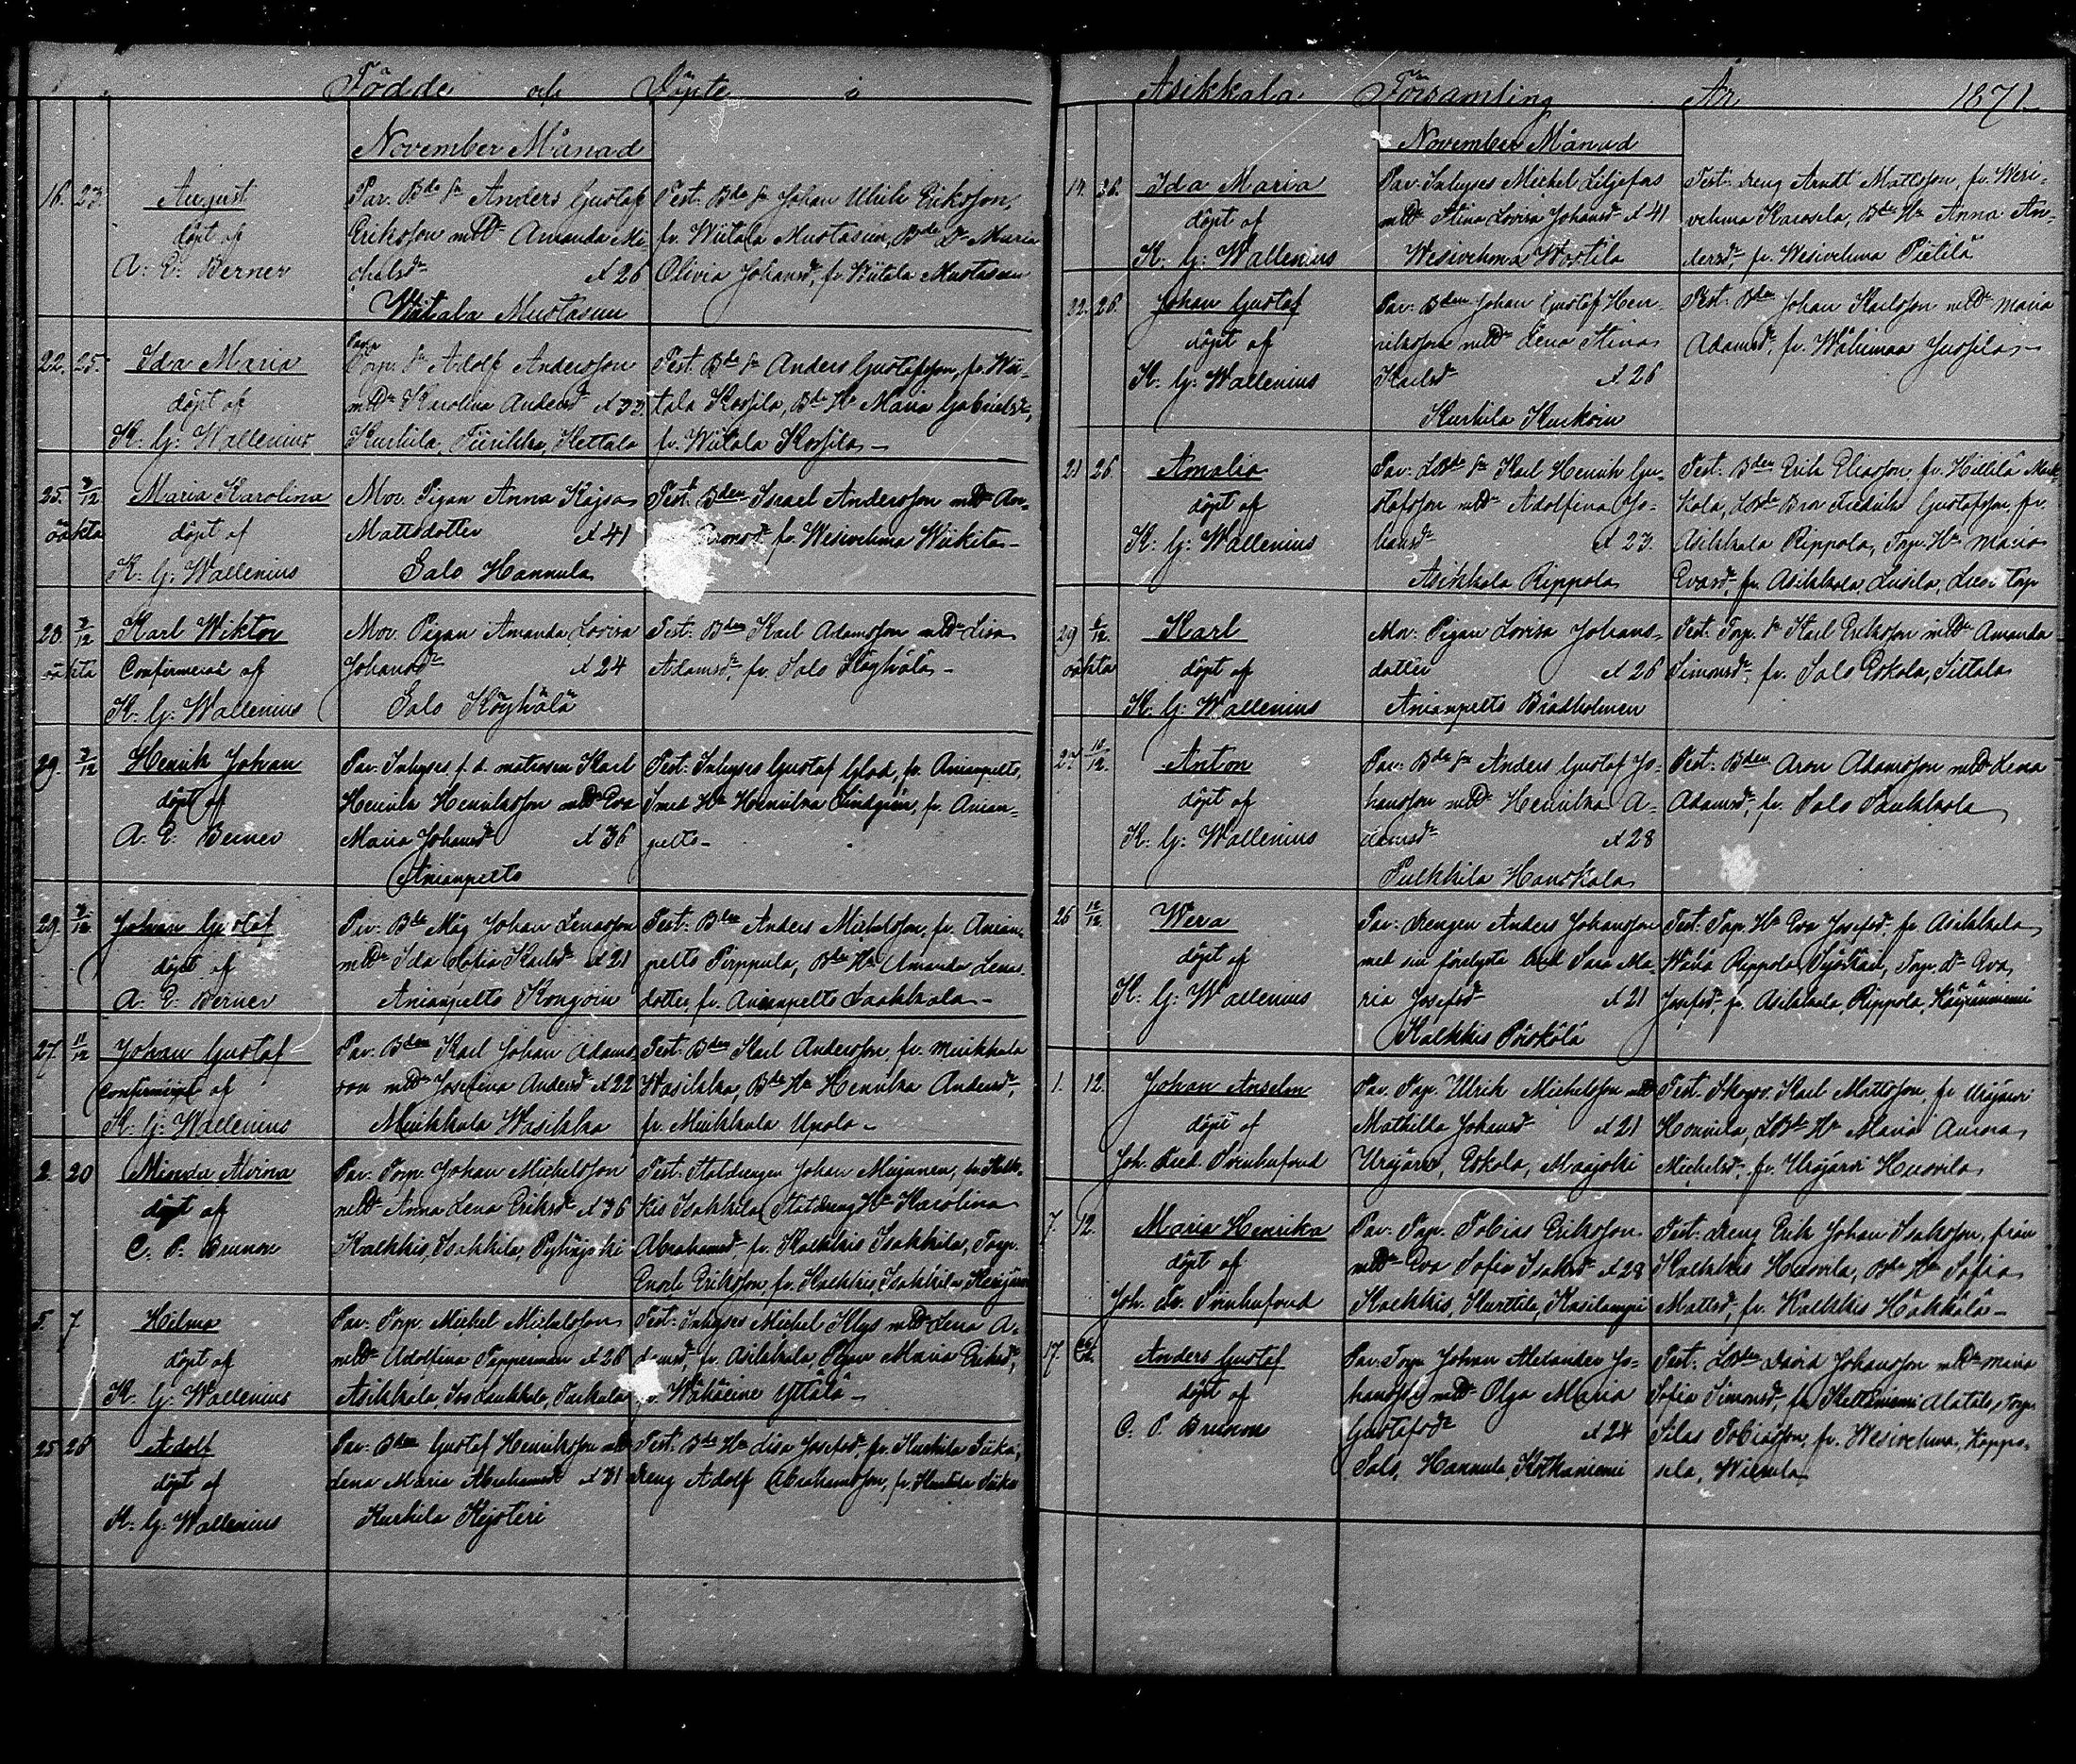 Födde och Döpte i
November Månad
16. 23. August
döpt af
A. E. Berner
Par. Bde Sn Anders Gustaf
Eriksson m Dn Amanda Mi
chelsdr Å 26
Wiitala Mustasuu
Test. Bde Sn Johan Ulrik Eriksson,
fr. Wiitala Mustasuu, Bde Dr Maria
Olivia Johansdr, fr. Wiitala Mustasuu
22. 25. Ida Maria
döpt af
K. G. Wallenius
Torp. Sn Adolf Andersson
m Dn Karolina Andersdr Å 33.
Kurhila, Tiirikka, Kettala
Test. Bde Sn Anders Gustafsson, fr. Wii-
tala Kossila, Bde Hu Maria Gabrielsdr,
fr. Wiitala Kossila -
25. 3/12 Maria Karolina
oäkta döpt af
K. G. Wallenius
Mor. Pigan Anna Kajsa
Mattsdotter Å 41
Salo Hannula
Test. Bden Israel Andersson m Dn An-
fr. Wesivehma Wiikita -
28. 3/12 Karl Wiktor
oäkta Confirmerad af
K. G. Wallenius
Mor. Pigan Amanda Lovisa
Johansdr Å 24
Salo Köyhälä
Test. Bden Karl Adamsson m Dn Lisa
Adamsdr, fr. Salo Köyhälä -
29. 3/12 Henrik Johan
döpt af
A. E. Berner
Par. Inhyses f. d. matrosen Karl
Henrik Henriksson m Dn Eva
Maria Johansdr Å 36
Anianpelto
Test. Inhyses Gustaf Glad, fr. Anianpelto,
Smed Hu Henrika Lindgrén, fr. Anian-
pelto -
29. 3/12 Johan Gustaf
döpt af
A. E. Berner
Par. Bde Måg Johan Lenasson
m Dn Ida Sofia Karlsdr Å 21
Anianpelto Kongoin
Test. Bden Anders Michelsson, fr. Anian-
pelto Pirppula, Bde Hu Amanda Lenas
dotter, fr. Anianpelto Laakkola -
27. 11/12 Johan Gustaf
Confirmerad af
K. G. Wallenius
Par. Bden Karl Johan Adams
son m Dn Josefina Andersdr Å 22
Muikkula Wasikka
Test. Bden Karl Andersson, fr. Muikkula
Wasikka, Bde Hu Henrika Andersdr,
fr. Muikkula Upola -
2. 20 Minda Alvina
döpt af
C. P. Brunou
Par. Torp. Johan Michelsson
m Dn Anna Lena Eriksdr Å 36
Kalkkis, Isakkila, Pyhäjoki
Test. Statdrengen Johan Muijunen, fr. Kalk-
kis Isakkila, Statdreng Hu Karolina
Abrahamsdr, fr. Kalkkis Isakkila, Torp.
Enock Eriksson, fr. Kalkkis, Isakkila
5. 7. Hilma
döpt af
K. G. Wallenius
Par. Torp. Michel Michelsson
m Dn Adolfina Papperman Å 26
Asikkala, Iso Laukkala, Turkula
Test. Inhyses Michel Klys m Dn Lena A-
damsdr, fr. Asikkala, Pigan Maria Eriksdr,
Wähäeine Yttälä -
25 26 Adolf
döpt af
K. G. Wallenius
Par. Bden Gustaf Henriksson m Dn
Lena Maria Abrahamsdr Å 31
Kurhila Kejsteri
Test. Bde Hu Lisa Josefsdr, fr. Kurhila Siika,
dreng Adolf Abrahamsson, fr. Kurhila Siika
Asikkala Församling År 1871
November Månad
14. 26. Ida Maria
döpt af
K. G. Wallenius
Par. Inhyses Michel Liljefors
m Dn Stina Lovisa Johansdr Å 41
Wesivehma Wostila
Test. dreng Arndt Mattsson, fr. Wesi-
vehma Karosela, Bde Hu Anna An-
dersdr, fr. Wesivehma Pietilä
22. 26. Johan Gustaf
döpt af
K. G. Wallenius
Par. Bden Johan Gustaf Hen-
riksson m Dn Lena Stina
Karlsdr Å 26
Kurhila Kurkoin
Test. Bden Johan Karlsson m Dn Maria
Adamsdr, fr. Wähimaa Jussila -
21 26. Amalia
döpt af
K. G. Wallenius
Par. LBde Sn Karl Henrik Gu-
stafsson m Dn Adolfina Jo-
hansdr Å 23.
Asikkala Rippola
Test. Bden Erik Eliasson, fr. Hillilä Mark-
kola, LBde Bror Fredrik Gustafsson, fr.
Asikkala Rippola, Torp. Hu Maria
Evasdr, fr. Asikkala, Lusila,
29 6/12 Karl
oäkta döpt af
K. G. Wallenius
Mor. Pigan Lovisa Johans-
dotter Å 26
Anianpelto Brädholmen
Test. Torp. Sn Karl Eriksson m Dn Amanda
Simonsdr, fr. Salo Eskola, Sittala
27. 10/12 Anton
döpt af
K. G. Wallenius
Par. Bde Sn Anders Gustaf Jo-
hansson m Dn Henrika A-
damsdr Å 28
Pulkkila Hanskala
Test. Bden Aron Adamsson m Dn Lena
Adamsdr, fr. Salo Paukkola
26 12/12 Wera
döpt af
K. G. Wallenius
Par. drengen Anders Johansson
med sin förelysta brud Sara Ma-
ria Josefsdr Å 21
Kalkkis Pörskölä
Test. Torp. Hu Eva Josefsdr, fr. Asikkala
Rippola, Torp. dr Eva
Josefsdr, fr. Asikkala, Rippola,
1. 12. Johan Anselm
döpt af
Joh. Fred. Svinhufvud
Par. Torp. Ulrik Michelsson m Dn
Mathilda Johansdr Å 21
Urajärvi, Eskola, Maajoki
Test. Skogv. Karl Mattsson, fr. Urajärvi
Huovila, LBde Hu Maria Aurora
Michelsdr, fr. Urajärvi Huovila
7. 12. Maria Henrika
döpt af
Joh. Fr. Svinhufvud
Par. Torp. Tobias Eriksson
m Dn Eva Sofia Isaksdr Å 28
Kalkkis, Kurttila, Kasilampi
Test. dreng Erik Johan Isaksson, från
Kalkkis Huovila, Bde Hu Sofia
Mattsdr, fr. Kalkkis Häkkälä -
17. Anders Gustaf
döpt af
C. P. Brunou
Par. Torp. Johan Alexander Jo-
hansson m Dn Olga Maria
Gustafsdr Å 24
Salo, Hannula, Kotkaniemi
Test. LBden David Johansson m Dn Maria
Sofia Simonsdr, fr. Kalkiniemi Alatalo, Torp.
Silas Tobiasson, fr. Wesivehma, Kappo-
sela,